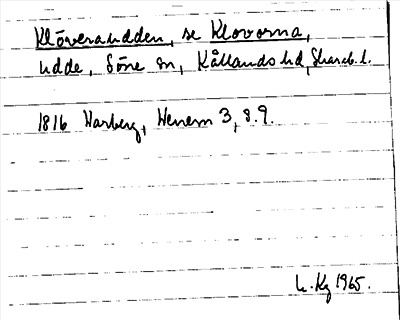 Klöveraudden, se Klovorna,
udde, Söne sn, Kållands hd, Skarab. l.
1816 Warberg, Wenern 3, s. 9.
L. Kg 1965.